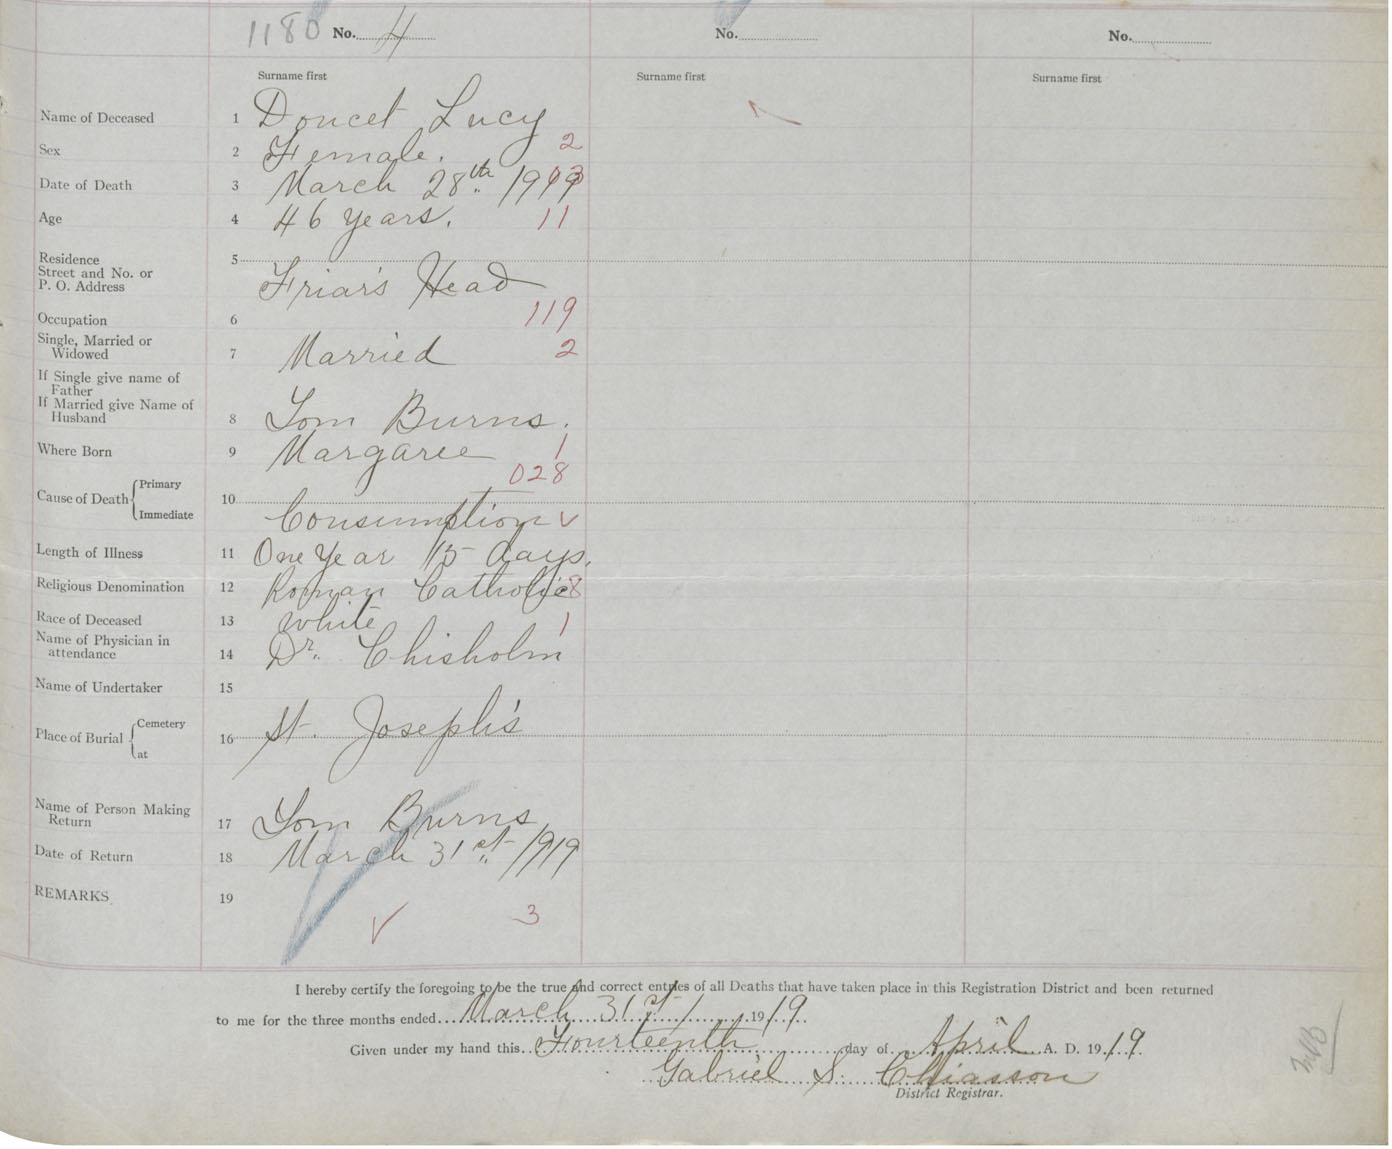 1180 No. 4 No. No.
Surname first Surname first Surname first
Name of Deceased 1 Doucet Lucy
Sex 2 Female. 2
Date of Death 3 March 28th 1919 03
Age 4 46 years. 11
Residence
Street and No. or
P. O. Address 5 Friar's Head
Occupation 6 119
Single, Married or
Widowed 7 Married 2
If Single give name of
Father
If Married give Name of
Husband 8 Tom Burns.
Where Born 9 Margaree 1
028
Cause of Death Primary
Immediate 10 Consumption v
Length of Illness 11 One Year 15 days.
Religious Denomination 12 Roman Catholic 8
Race of Deceased 13 white 1
Name of Physician in
attendance 14 Dr. Chisholm
Name of Undertaker 15
Place of Burial Cemetery
at 16 St. Joseph's
Name of Person Making
Return 17 Tom Burns
Date of Return 18 March 31st 1919
REMARKS. 19
3
I hereby certify the foregoing to be the true and correct entries of all Deaths that have taken place in this Registration District and been returned
to me for the three months ended March 31st 1919.
Given under my hand this Fourteenth day of April A. D. 1919.
Gabriel S. Chiasson
District Registrar.